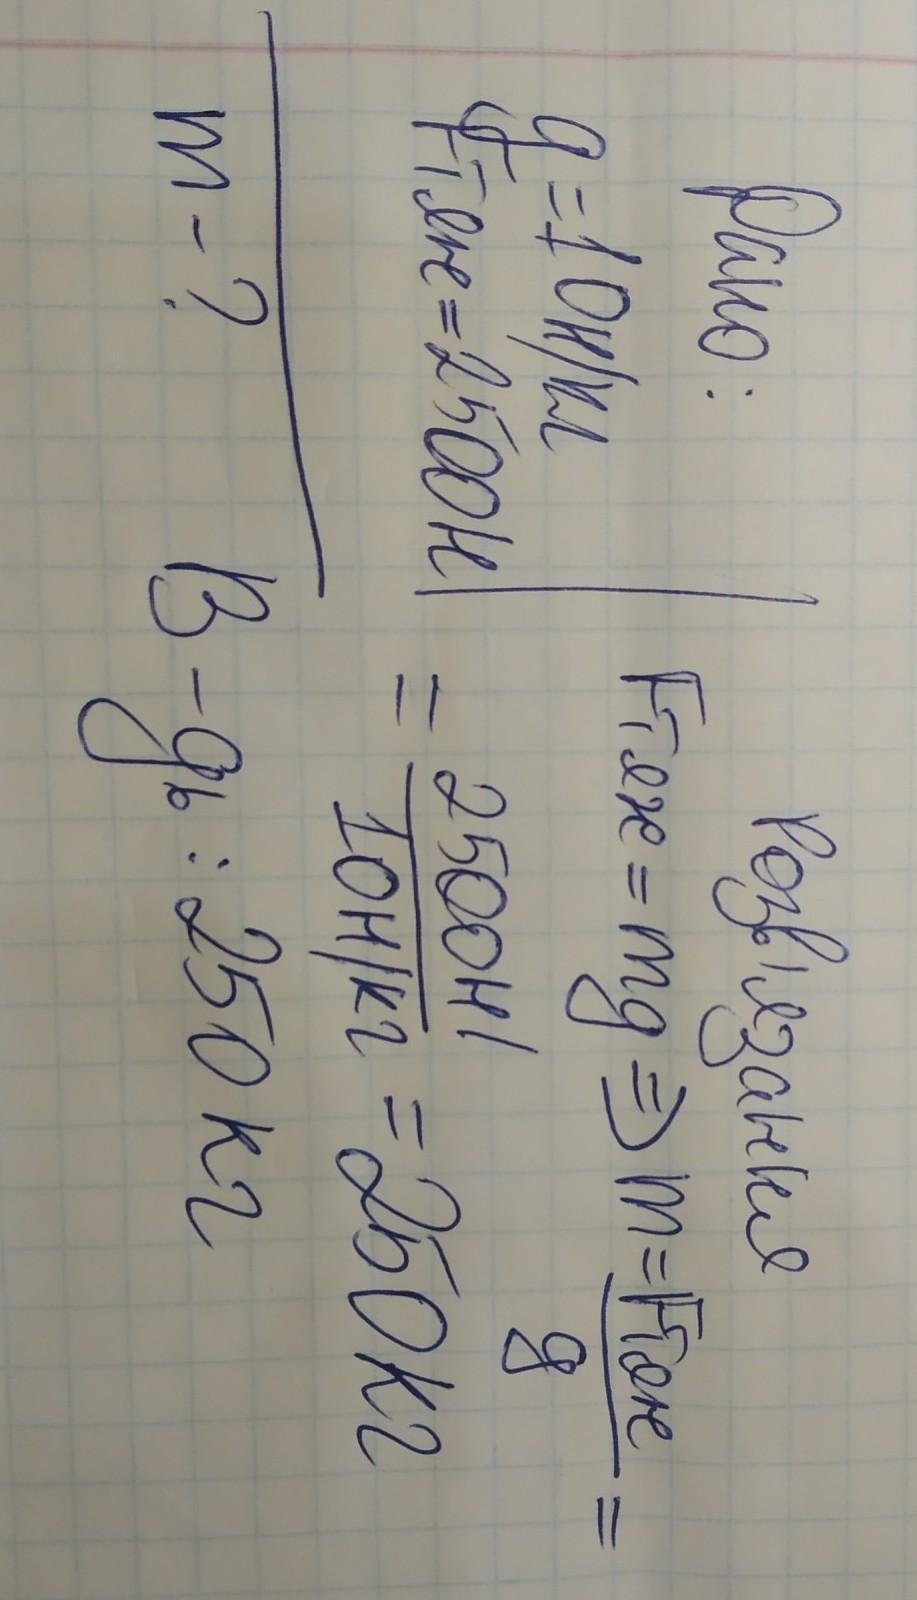 Дано:
g=10н/кг
Fтяж=2500н
m-?
Розв'язання
Fтяж=mg⇒m=Fтяж/g=
=2500н/10н/кг=250кг
В-дь:250кг